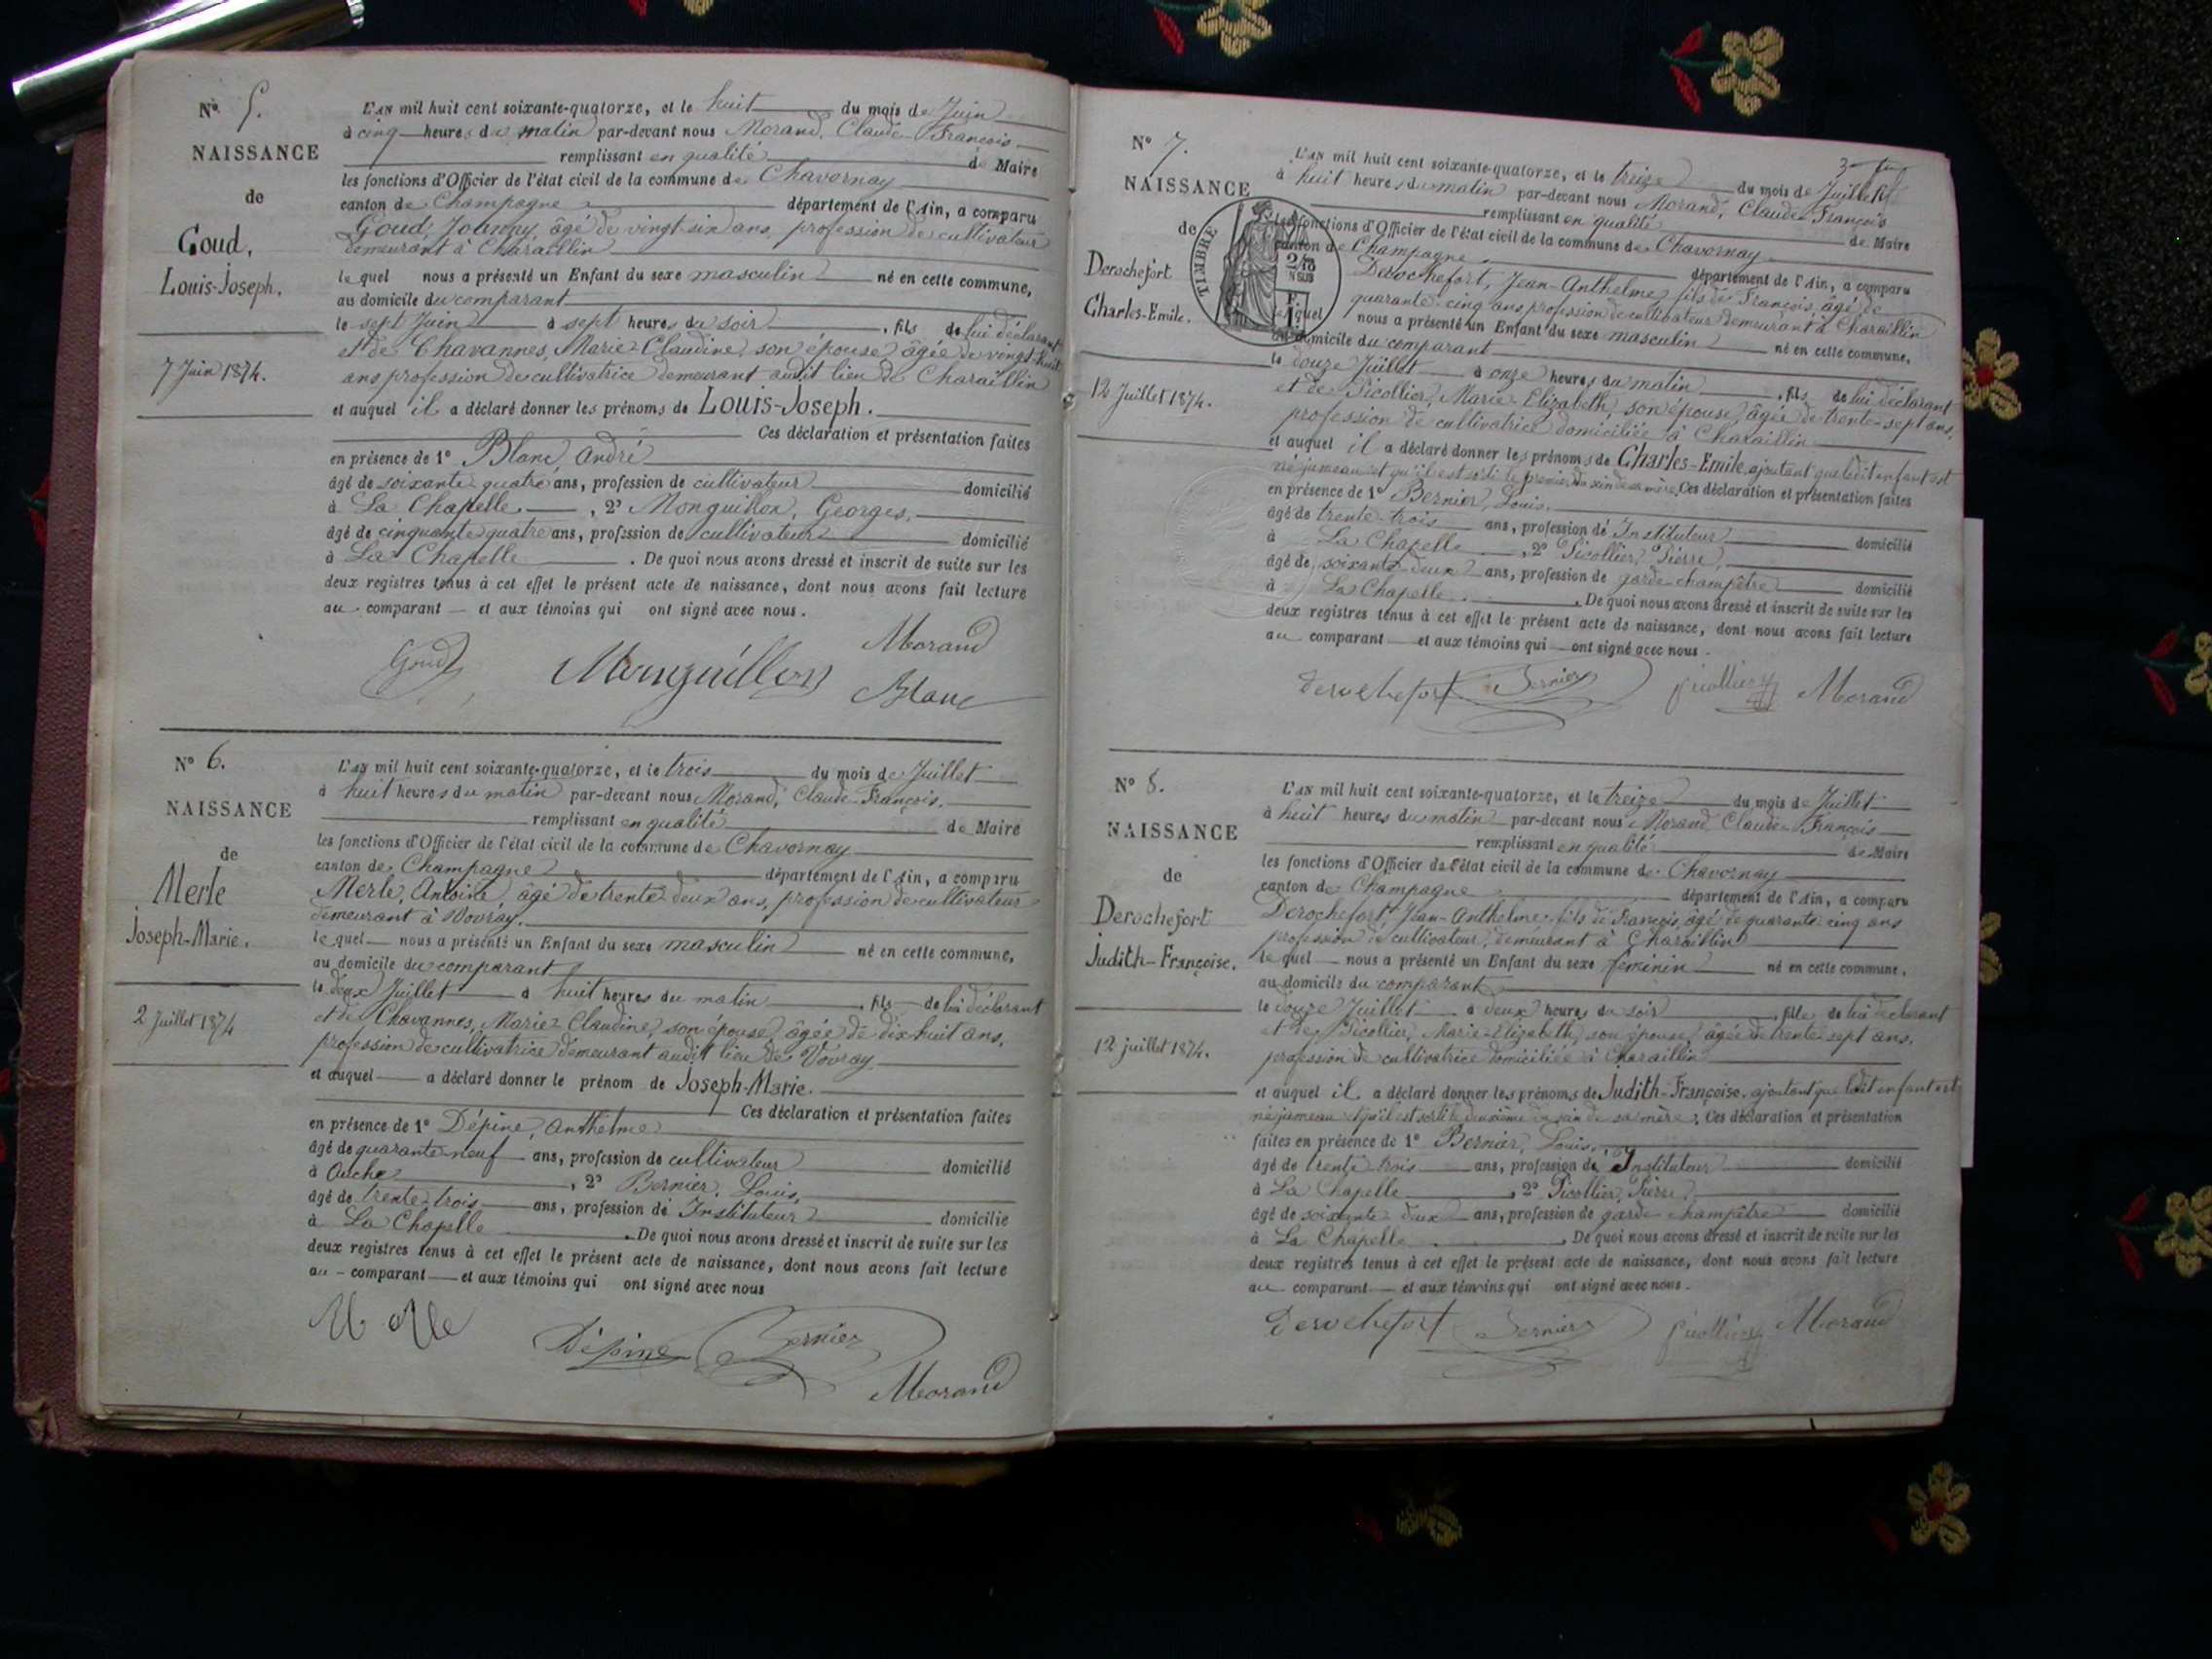 N° 5.
NAISSANCE
de
Goud,
Louis-Joseph.
7 Juin 1874.
L'AN mil huit cent soixante-quatorze, et le huit du mois de Juin
à cinq heures du matin par-devant nous Morand, Claude-François
remplissant en qualité de Maire
les fonctions d'Officier de l'état civil de la commune de Chavornay
canton de Champagne département de l'Ain, a comparu
Goud, Joanny, âgé de vingt-six ans, profession de cultivateur
demeurant à Charaillin
le quel nous a présenté un Enfant du sexe masculin né en cette commune,
au domicile du comparant
le sept Juin à sept heures du soir, fils de lui déclarant
et de Chavannes, Marie-Claudine, son épouse âgée de vingt-huit
ans profession de cultivatrice demeurant audit lieu de Charaillin
et auquel il a déclaré donner les prénoms de Louis-Joseph.
Ces déclaration et présentation faites
en présence de 1° Blanc, André
âgé de soixante-quatre ans, profession de cultivateur domicilié
à La Chapelle, 2° Monguillon, Georges,
âgé de cinquante quatre ans, profession de cultivateur domicilié
à La Chapelle. De quoi nous avons dressé et inscrit de suite sur les
deux registres tenus à cet effet le présent acte de naissance, dont nous avons fait lecture
au comparant et aux témoins qui ont signé avec nous.
Morand
Goud Monguillon Blanc
N° 6.
NAISSANCE
de
Merle
Joseph-Marie.
2 Juillet 1874
L'AN mil huit cent soixante-quatorze, et le trois du mois de Juillet
à huit heures du matin par-devant nous Morand, Claude-François.
remplissant en qualité de Maire
les fonctions d'Officier de l'état civil de la commune de Chavornay
canton de Champagne département de l'Ain, a comparu
Merle, Antoine, âgé de trente-deux ans, profession de cultivateur
demeurant à Vovray.
le quel nous a présenté un Enfant du sexe masculin né en cette commune,
au domicile du comparant
le deux Juillet à huit heures du matin, fils de lui déclarant
et de Chavannes, Marie-Claudine, son épouse, âgée de dix huit ans,
profession de cultivatrice demeurant audit lieu de Vovray
et auquel a déclaré donner le prénom de Joseph-Marie.
Ces déclaration et présentation faites
en présence de 1° Dépine, Anthelme
âgé de quarante-neuf ans, profession de cultivateur domicilié
à Ouche, 2° Bernier, Louis,
âgé de trente-trois ans, profession de Instituteur domicilié
à La Chapelle. De quoi nous avons dressé et inscrit de suite sur les
deux registres tenus à cet effet le présent acte de naissance, dont nous avons fait lecture
au comparant et aux témoins qui ont signé avec nous
Dépine Bernier
Morand
N° 7.
NAISSANCE
de
Derochefort
Charles-Emile.
12 Juillet 1874.
TIMBRE
L'AN mil huit cent soixante-quatorze, et le treize du mois de Juillet
à huit heures du matin par-devant nous Morand, Claude-François
remplissant en qualité de Maire
les fonctions d'Officier de l'état civil de la commune de Chavornay
canton de Champagne département de l'Ain, a comparu
Derochefort, Jean-Anthelme, fils de François, âgé de
quarante-cinq ans profession de cultivateur demeurant à Charaillin
le quel nous a présenté un Enfant du sexe masculin né en cette commune,
au domicile du comparant
le douze Juillet à onze heures du matin, fils de lui déclarant
et de Picollier, Marie-Elizabeth, son épouse, âgée de trente-sept ans,
profession de cultivatrice domiciliée à Charaillin
et auquel il a déclaré donner les prénoms de Charles-Emile, ajoutant que ledit enfant est
né jumeau et qu'il est sorti le premier du sein de sa mère. Ces déclaration et présentation faites
en présence de 1° Bernier, Louis,
âgé de trente-trois ans, profession de Instituteur domicilié
à La Chapelle, 2° Picollier, Pierre,
âgé de soixante-deux ans, profession de garde-champêtre domicilié
à La Chapelle. De quoi nous avons dressé et inscrit de suite sur les
deux registres tenus à cet effet le présent acte de naissance, dont nous avons fait lecture
au comparant et aux témoins qui ont signé avec nous.
Derochefort Bernier Picollier Morand
N° 8.
NAISSANCE
de
Derochefort
Judith-Françoise.
12 juillet 1874.
L'AN mil huit cent soixante-quatorze, et le treize du mois de Juillet
à huit heures du matin par-devant nous Morand Claude-François
remplissant en qualité de Maire
les fonctions d'Officier de l'état civil de la commune de Chavornay
canton de Champagne département de l'Ain, a comparu
Derochefort Jean-Anthelme fils de François, âgé de quarante-cinq ans
profession de cultivateur, demeurant à Charaillin
le quel nous a présenté un Enfant du sexe féminin né en cette commune,
au domicile du comparant
le douze Juillet à deux heures du soir, fille de lui déclarant
et de Picollier, Marie-Elizabeth, son épouse, âgée de trente sept ans,
profession de cultivatrice domiciliée à Charaillin
et auquel il a déclaré donner les prénoms de Judith-Françoise. ajoutant que ledit enfant est
né jumeau et qu'il est sorti le deuxième du sein de sa mère. Ces déclaration et présentation
faites en présence de 1° Bernier, Louis,
âgé de trente trois ans, profession de Instituteur domicilié
à La Chapelle, 2° Picollier, Pierre,
âgé de soixante deux ans, profession de garde champêtre domicilié
à La Chapelle. De quoi nous avons dressé et inscrit de suite sur les
deux registres tenus à cet effet le présent acte de naissance, dont nous avons fait lecture
au comparant et aux témoins qui ont signé avec nous.
Derochefort Bernier Picollier Morand